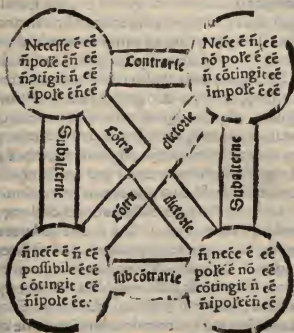 Necesse ē eē
n̄pōse ē n̄ eē
n̄ ↄtīgit n̄ eē
īpose ē n̄ eē
Contrarie
Necē ē n̄ eē
nō pōse ē eē
n̄ cōtingit eē
impose ē eē
Subalterne
Cōtra
dictorie
Cōtra
dictorie
Subalterne
n̄necē ē n̄ eē
possibile ē eē
cōtingit eē
n̄ipose ē eē
subcōtrarie
n̄ necē ē eē
pose ē nō eē
cōtingit n̄ eē
n̄ipose ē n̄ eē